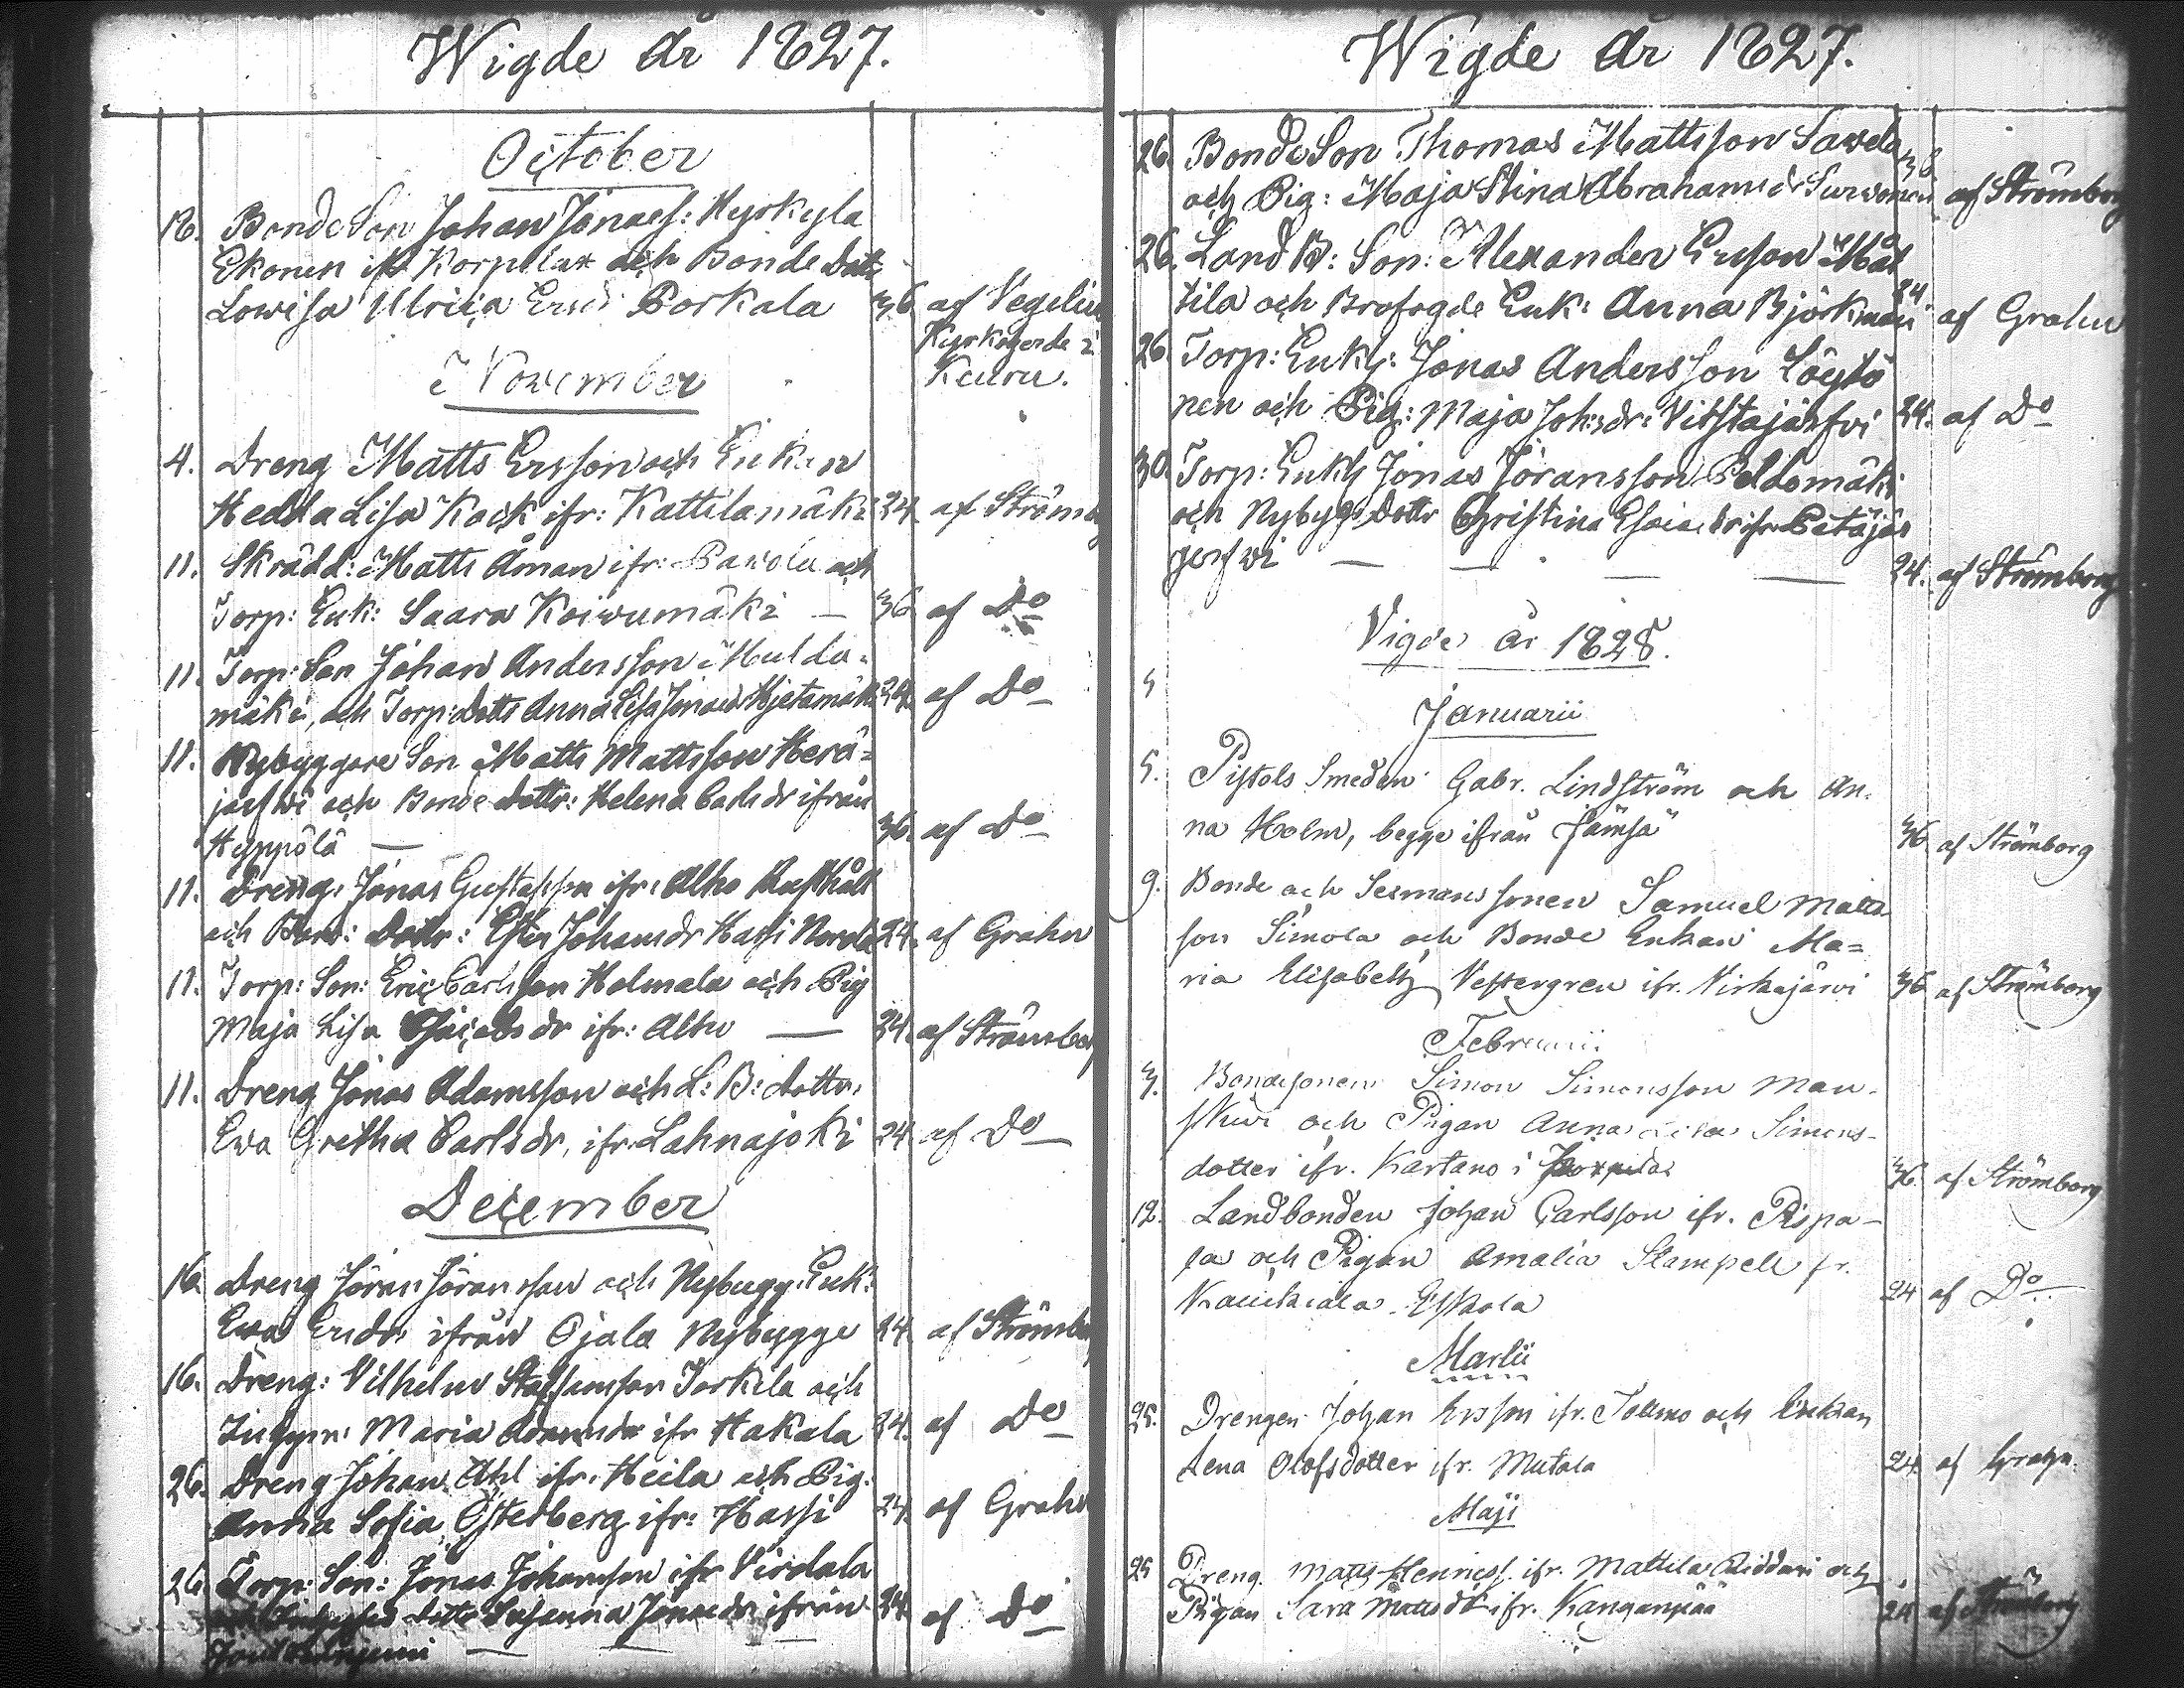 Wigde År 1827.
October
18. BondeSon Johan Jonass: Hyrkylä
Ekonen ifr Korpilax och Bonde Dottr
Lowisa Ulrica Ersdr Porkala 36 af Vegelius
Kyrkoherde i
Keuru.
November
4. Dreng Matts Ersson och Enkan
Hedda Lisa Kock ifr: Kattilamäki 24. af Strömborg
11. Skrädd: Matts Åman ifr: Pawola och
Torp: Enk: Saara Koiwumäki — 36 af Do
11. Torp: Son Johan Andersson Multa-
mäki, och Torp: dottr Anna Lisa Jonasdr Hjetamäki 24. af Do
11. Nybyggare Son Matts Mattsson Herä-
jerfwi och Bonde dottr: Helena Carlsdr ifrån
Hyppölä — 36. af Do
11. Dreng: Jonas Gustafsson ifr: Alho Rusthåll
och Bond: Dottr: Ester Johansdr Hassi 24. af Grahn
11. Torp: Son: Eric Carlsson Holmala och Pig
Maja Lisa Jacobsdr ifr: Alho — 24. af Strömborg
11. Dreng Jonas Adamsson och L: B: dottr:
Ewa Gretha Carlsdr, ifr: Lahnajoki 24. af Do
December
16. Dreng Jöran Jöransson och Nybygg: Enk:
Ewa Ersdr ifrån Ojala Nybygge 24. af Strömborg
16. Dreng: Vilhelm Staffansson Torkila och
Maria Adamsdr ifr Hakala 24. af Do
26. Dreng Johan Ahl ifr. Heila och Pig:
Anna Sofia Österberg ifr: Hassi 24. af Grahn
26. Torp: Son: Jonas Johansson ifr Virdala
dottr Susanna Jonasdr ifrån 24. af Do
Wigde År 1827.
26. BondeSon Thomas Mattsson Sawela
och Pig: Maja Stina Abrahamsdr Surwonen 36. af Strömborg
26. Land B: Son: Alexander Ersson Mat
tila och Brofogde Enk: Anna Björkman 24. af Grahn
26. Torp: Enkl: Jonas Andersson Löytö
nen och Pig: Maja Joh:sdr: Vitstajärfvi 24. af Do
30. Torp: Enkl Jonas Jöransson Peldomäki
och Nybygg Dottr Christina Esaiaedr ifr Petäjäs
jerfwi — — — — 24. af Strömborg
Vigde år 1828.
Januarii
5. Pistols Smeden Gabr. Lindström och An-
na Holm, begge ifrån Jämsä 36 af Strömborg
9. Bonde och Sexmans sonen Samuel Matts-
son Simola och Bonde Enkan Ma=
ria Elisabeth Vestergren ifr. Virkajärwi 36 af Strömborg
Februarii
3. Bondesonen Simon Simonsson Man-
skiwi och Pigan Anna Lisa Simons-
dotter ifr. Kartano i Korpilax 36. af Strömborg
12. Landbonden Johan Carlsson ifr. Pispa-
la och Pigan Amalia Stampell fr.
Kauckiala Eskola 24 af Do
Martii
25. Drengen Johan Ersson ifr. Tollmo och Enkan
Lena Olofsdotter ifr. Mutala 24 af Grahn.
Maji
25 Dreng. Matts Henricss. ifr. Mattila Riddari och
Pigan Sara Mattsdr ifr. Kanganpää 24 af Strömborg